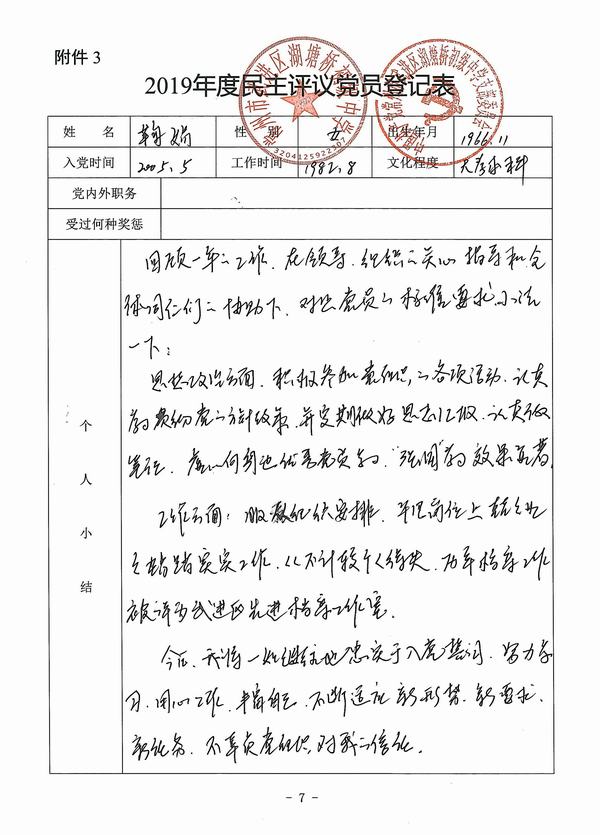 附件 3
2019年度民主评议党员登记表
姓 名 性 别 女 出生年月 1966.11
入党时间 2005.5 工作时间 1982.8 文化程度 大学本科
党内外职务
受过何种奖惩
个人小结
回顾一年的工作,在领导、组织的关心指导和全
体同仁们的协助下,对照党员的标准要求小结
一下:
思想政治方面,积极参加党组织的各项活动,认真
学习党的方针政策,并定期做好思想汇报,认真做
笔记,
工作方面:服从组织安排,在岗位上
踏踏实实工作,从不计较个人得失,
被评为武进区先进档案工作室。
今后,我将一如继往地忠实于入党誓词,努力学
习,用心工作,不断适应新形势、新要求、
新任务,不辜负党组织对我的信任。
3204125922207
- 7 -